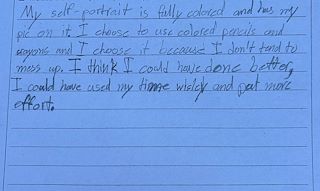 My self-portrait is fully colored and has my
pic on it. I choose to use colored pencils and
crayons and I choose it because I don't tend to
mess up. I think I could have done better,
I could have used my time wisely and put more
effort.